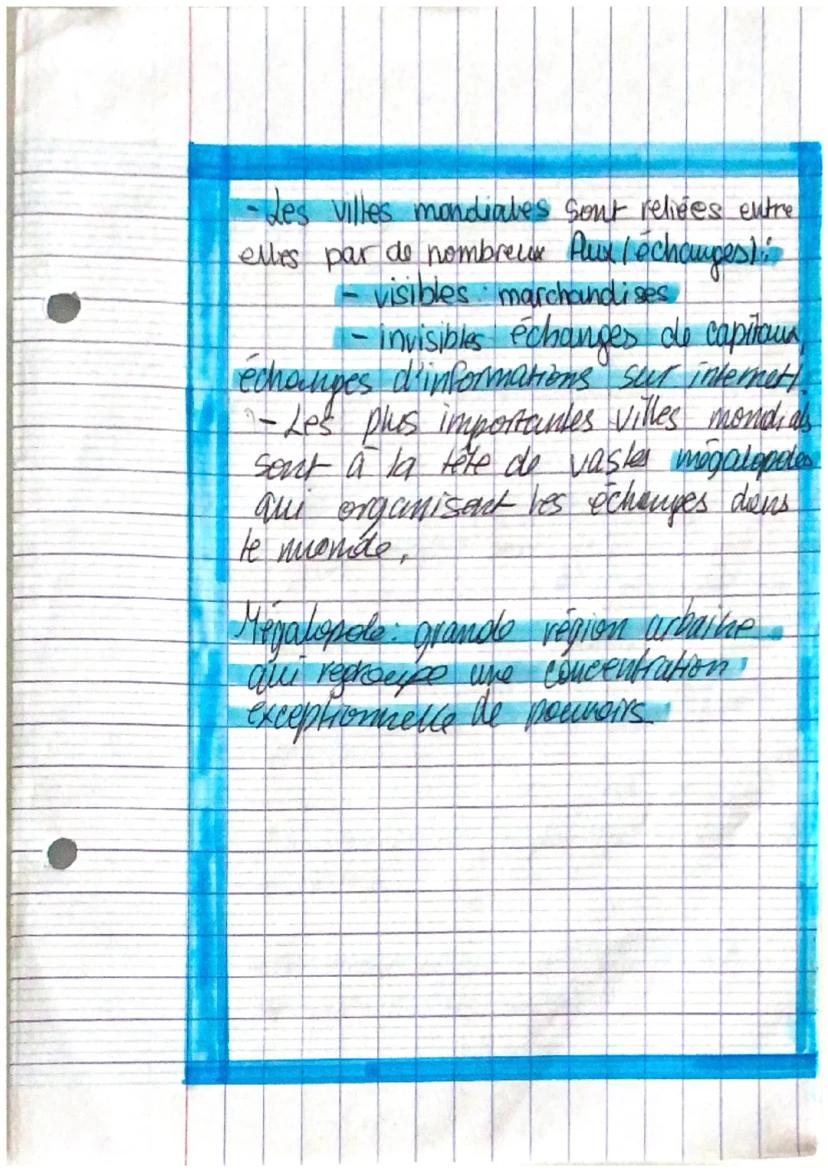 - Les villes mondiales sont reliées entre
elles par de nombreux flux (échanges) :
- visibles : marchandises
- invisibles échanges de capitaux,
échanges d'informations sur internet).
- Les plus importantes villes mondiales
sont à la tête de vastes mégalopoles
qui organisent les échanges dans
le monde.
Mégalopole : grande région urbaine
qui regroupe une concentration
exceptionnelle de pouvoirs.